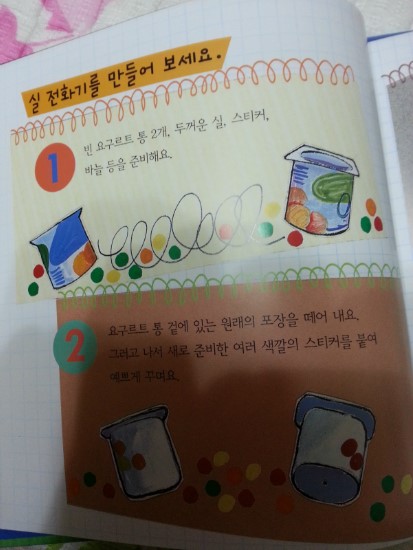 실 전화기를 만들어 보세요.
1
빈 요구르트 통 2개, 두꺼운 실, 스티커,
바늘 등을 준비해요.
2
요구르트 통 겉에 있는 원래의 포장을 떼어 내요.
그러고 나서 새로 준비한 여러 색깔의 스티커를 붙여
예쁘게 꾸며요.